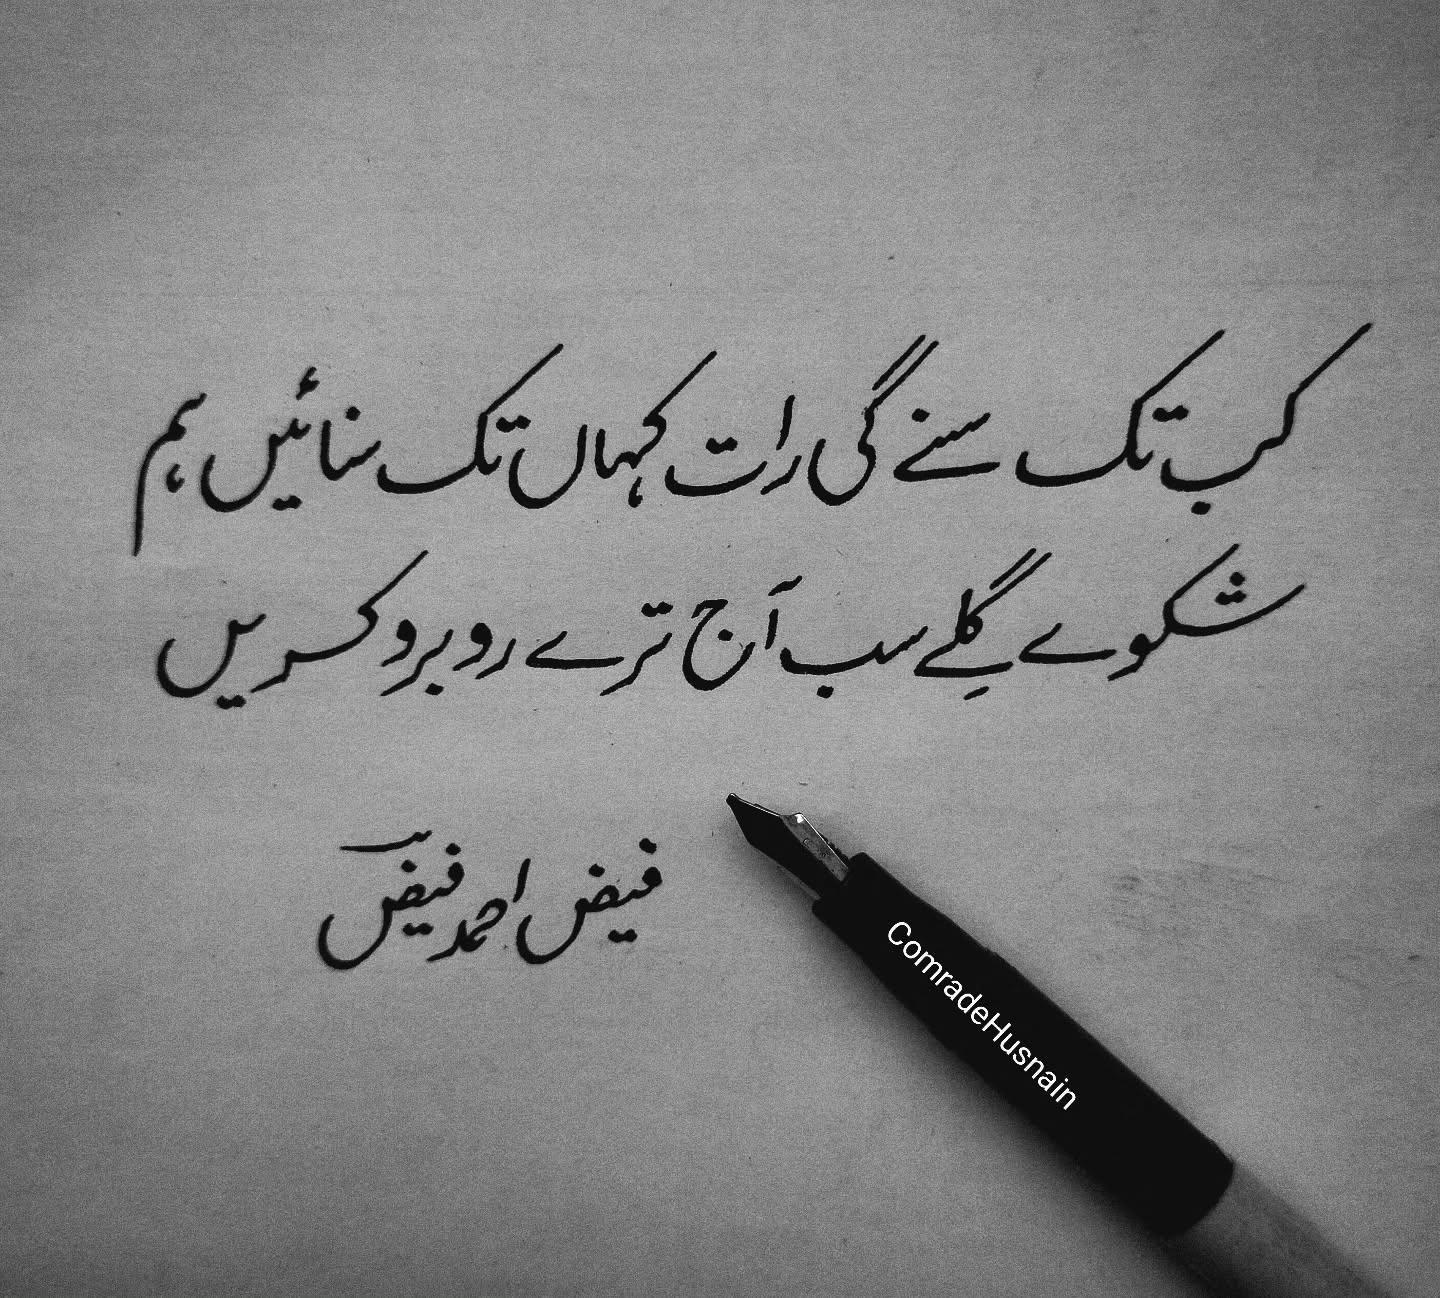 کب تک سنے گی رات کہاں تک سنائیں ہم
شکوے گِلے سب آج ترے روبرو کریں
فیض احمد فیض
ComradeHusnain